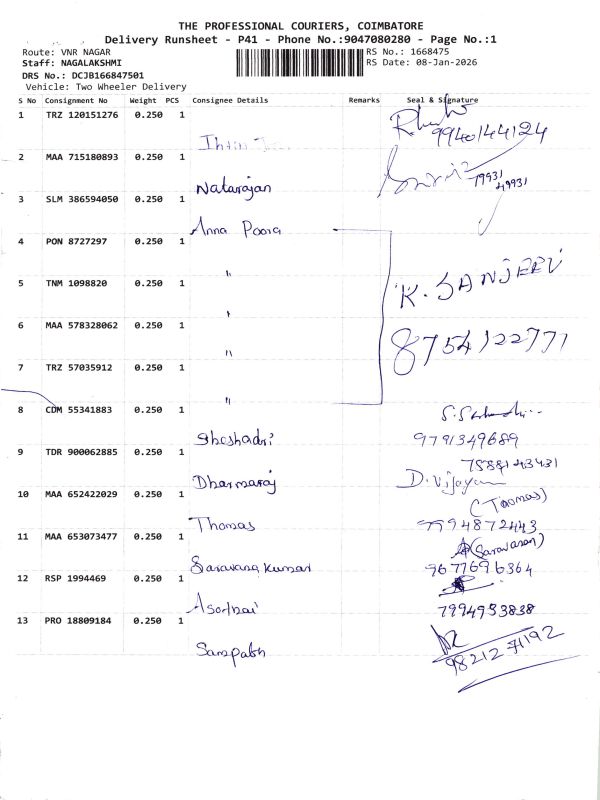 THE PROFESSIONAL COURIERS, COIMBATORE
Delivery Runsheet - P41 - Phone No.:9047080280 - Page No.:1
Route: VNR NAGAR
RS No.: 1668475
Staff: NAGALAKSHMI
RS Date: 08-Jan-2026
DRS No.: DCJB166847501
Vehicle: Two Wheeler Delivery
S No Consignment No Weight PCS Consignee Details Remarks Seal & Signature
1 TRZ 120151276 0.250 1
9940144124
2 MAA 715180893 0.250 1
Natarajan
79931
49931
3 SLM 386594050 0.250 1
Anna Poora
4 PON 8727297 0.250 1
"
K. SANJEEV
5 TNM 1098820 0.250 1
"
6 MAA 578328062 0.250 1
"
8754122771
7 TRZ 57035912 0.250 1
"
8 CDM 55341883 0.250 1
Sheshadri
9791349689
9 TDR 900062885 0.250 1
Dharmaraj
D. Vijayan
10 MAA 652422029 0.250 1
(Thomas)
Thomas
7994872443
11 MAA 653073477 0.250 1
(Saravanan)
Saravana kumar
9677696364
12 RSP 1994469 0.250 1
7994953838
13 PRO 18809184 0.250 1
Sampath